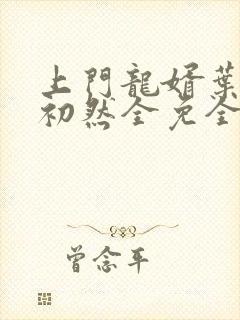 上門龍婿葉
初然全免全
曾念平